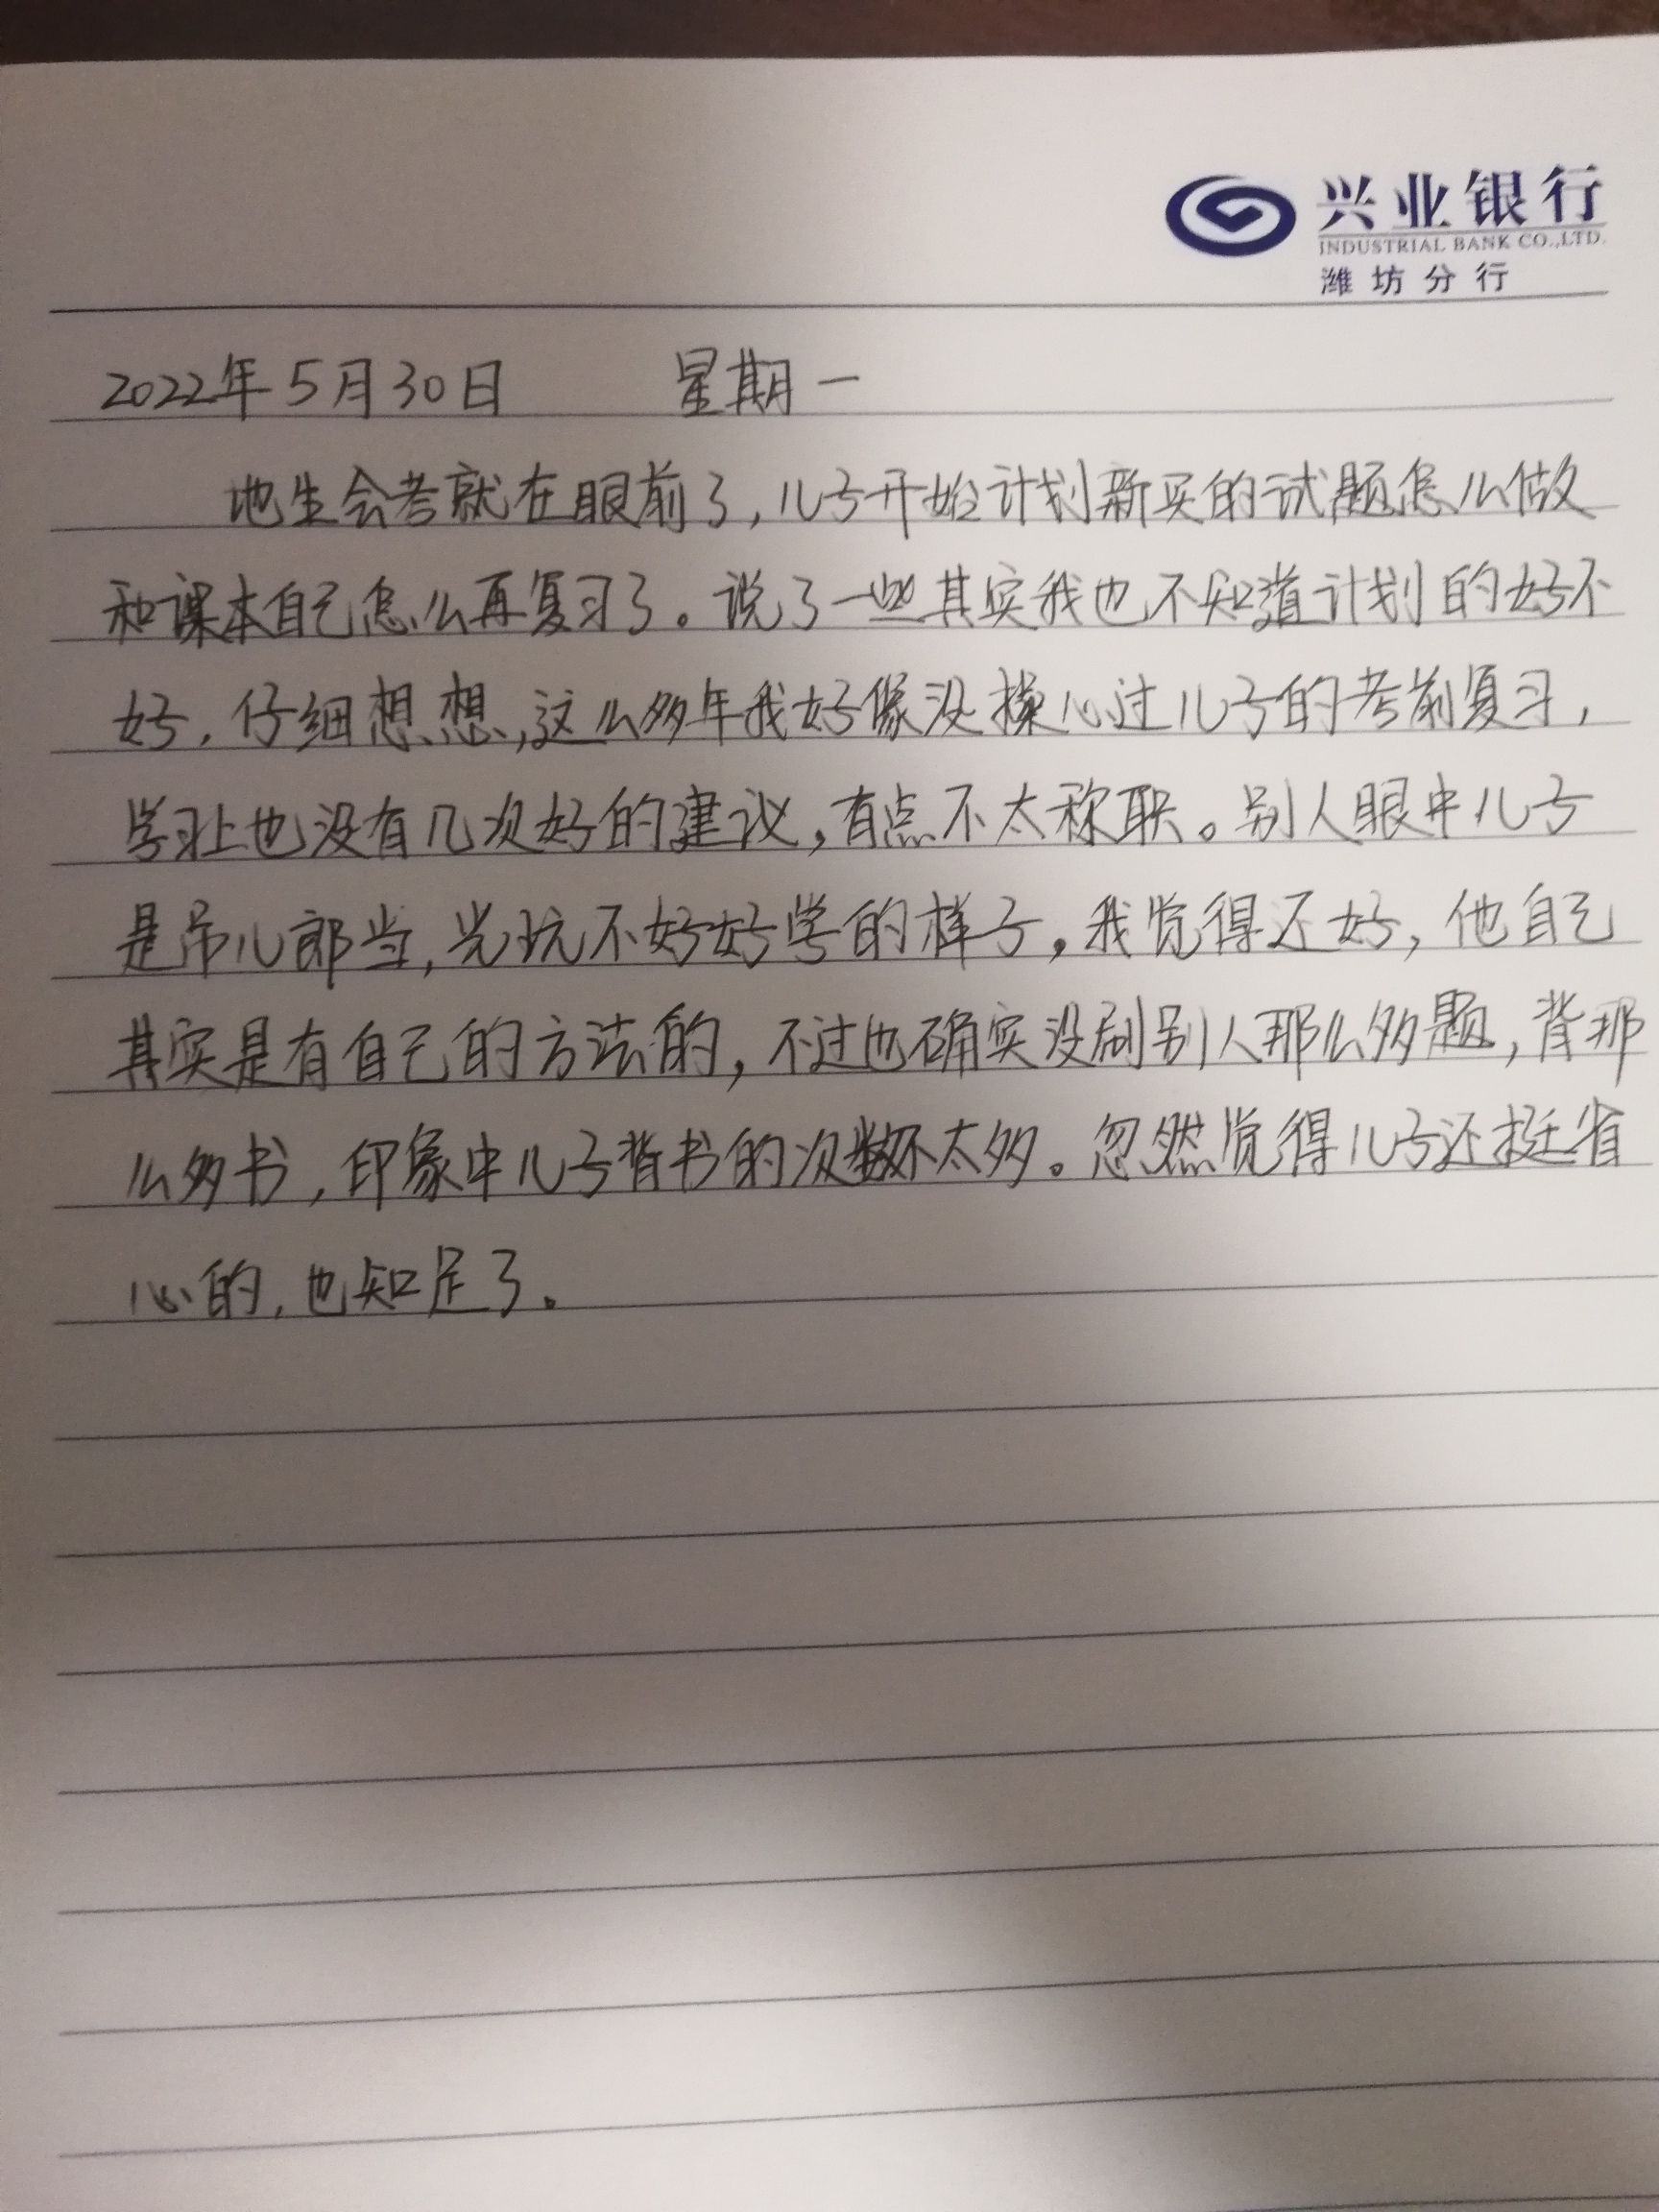 兴业银行
INDUSTRIAL BANK CO.,LTD.
潍坊分行
2022年5月30日 星期一
地生会考就在眼前了,儿子开始计划新买的试题怎么做
和课本自己怎么再复习了。说了一些其实我也不知道计划的好不
好,仔细想想,这么多年我好像没操心过儿子的考前复习,
学习上也没有几次好的建议,有点不太称职。别人眼中儿子
是吊儿郎当,光玩不好好学的样子,我觉得还好,他自己
其实是有自己的方法的,不过也确实没刷别人那么多题,背那
么多书,印象中儿子背书的次数不太多。忽然觉得儿子还挺省
心的,也知足了。